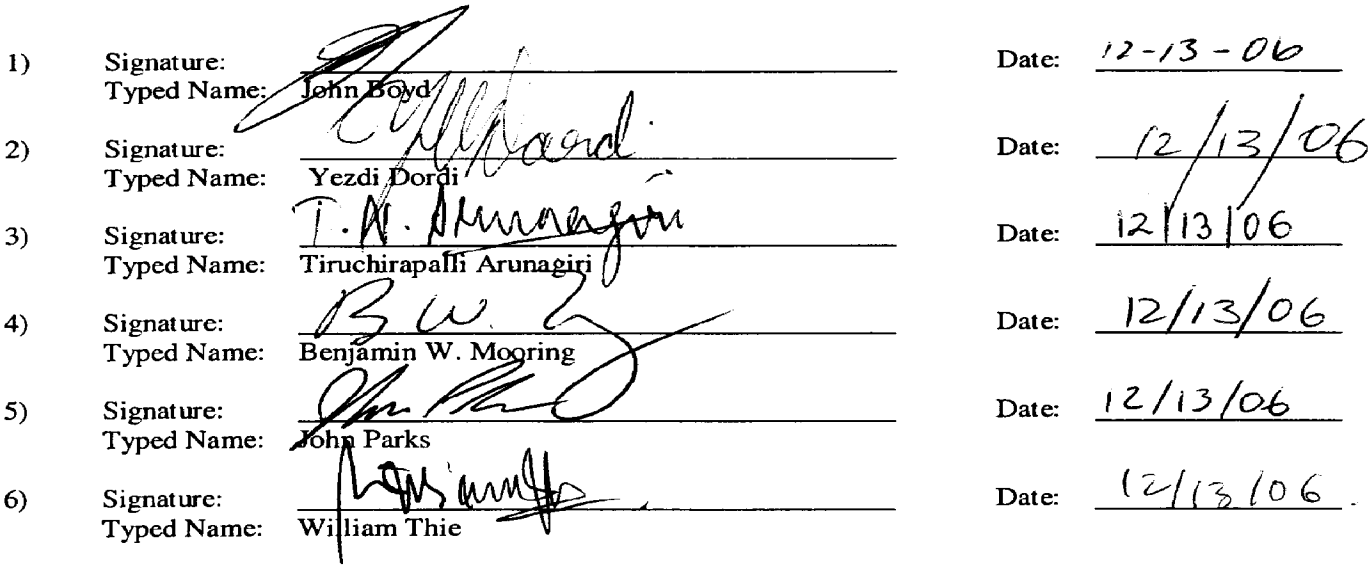 1) Signature: Date: 12-13-06
Typed Name: John Boyd
2) Signature: Date: 12/13/06
Typed Name: Yezdi Dordi
3) Signature: T. N. Arunagiri Date: 12/13/06
Typed Name: Tiruchirapalli Arunagiri
4) Signature: B W. Date: 12/13/06
Typed Name: Benjamin W. Mooring
5) Signature: John Date: 12/13/06
Typed Name: John Parks
6) Signature: Date: 12/13/06.
Typed Name: William Thie